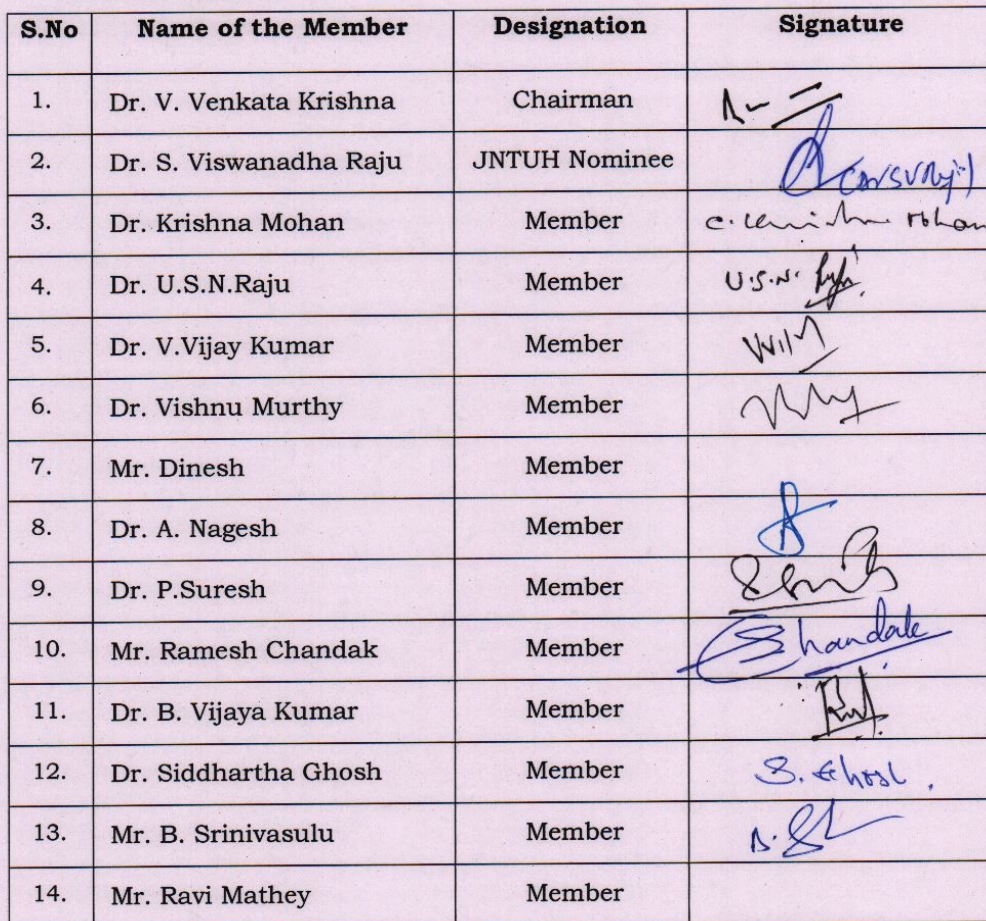 S.No Name of the Member Designation Signature
1. Dr. V. Venkata Krishna Chairman
2. Dr. S. Viswanadha Raju JNTUH Nominee
3. Dr. Krishna Mohan Member
4. Dr. U.S.N.Raju Member U.S.N.
5. Dr. V.Vijay Kumar Member
6. Dr. Vishnu Murthy Member
7. Mr. Dinesh Member
8. Dr. A. Nagesh Member
9. Dr. P.Suresh Member
10. Mr. Ramesh Chandak Member
11. Dr. B. Vijaya Kumar Member
12. Dr. Siddhartha Ghosh Member S. Ghosh
13. Mr. B. Srinivasulu Member
14. Mr. Ravi Mathey Member